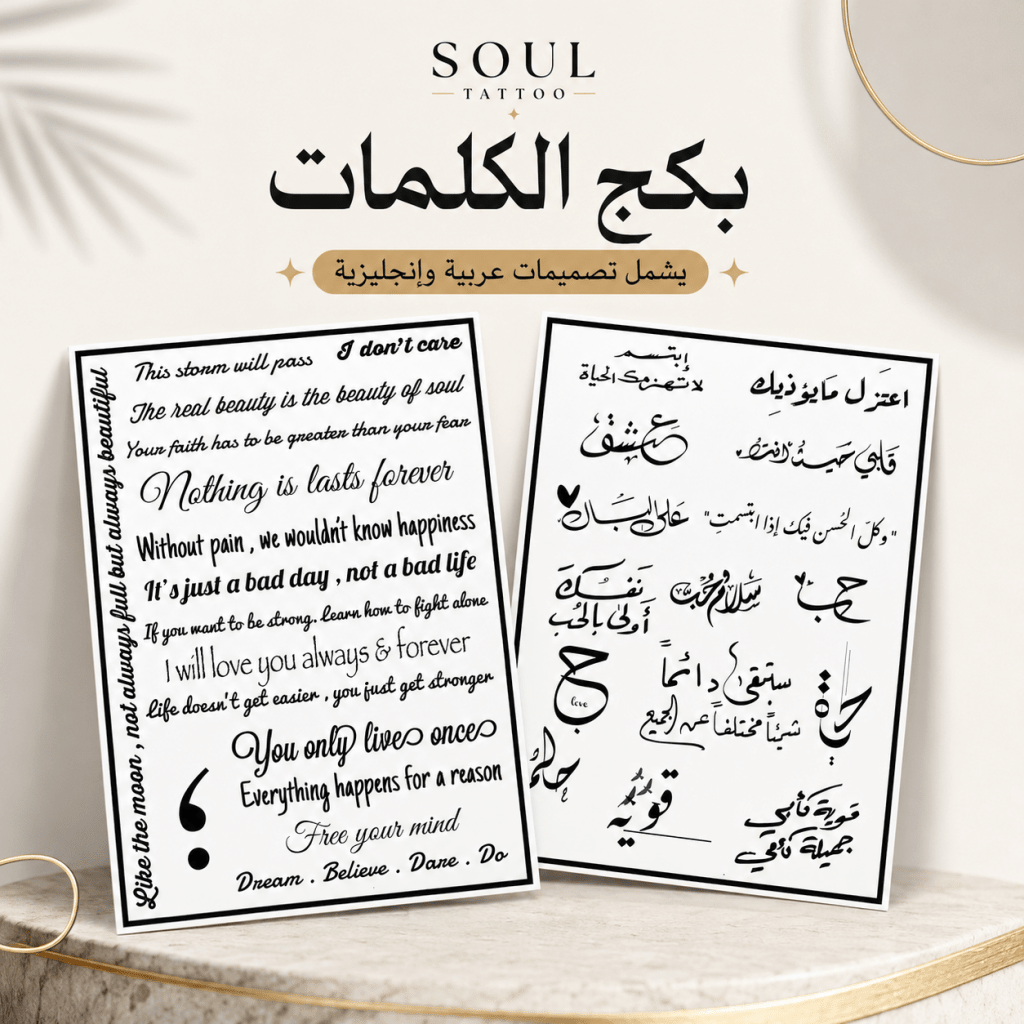 SOUL
TATTOO
بكج الكلمات
يشمل تصميمات عربية وإنجليزية
This storm will pass
I don't care
The real beauty is the beauty of soul
Your faith has to be greater than your fear
Nothing is lasts forever
Without pain , we wouldn't know happiness
It's just a bad day , not a bad life
If you want to be strong. Learn how to fight alone
I will love you always & forever
Life doesn't get easier , you just get stronger
You only live once
Everything happens for a reason
Free your mind
Dream . Believe . Dare . Do
Like the moon , not always full but always beautiful
;
إبتسم
لا تهزمك الحياة
اعتزل مايؤذيك
عشق
قلبي حيث أنت
على البال
"وكل الحسن فيك إذا ابتسمت"
نفسك
أولى بالحب
سلام حب
حب
ح
love
ستبقى دائماً
شيئاً مختلفاً عن الجميع
حياة
قوية
قوية كأمي
جميلة كأمي